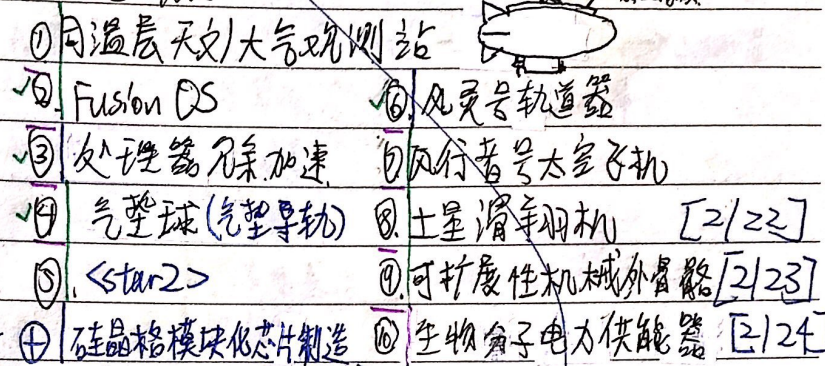 ① 同温层天文/大气观测站
✓②. Fusion OS
✓③ 处理器冗余加速
✓④ 气垫球(气垫导轨)
⑤. <star2>
⊕ 硅晶格模块化芯片制造
✓⑥. 风灵号轨道器
⑦ 风行者号太空飞机
⑧. 土星滑翔机 [2/22]
⑨. 可扩展性机械外骨骼 [2/23]
⑩ 生物分子电力供能器 [2/24]